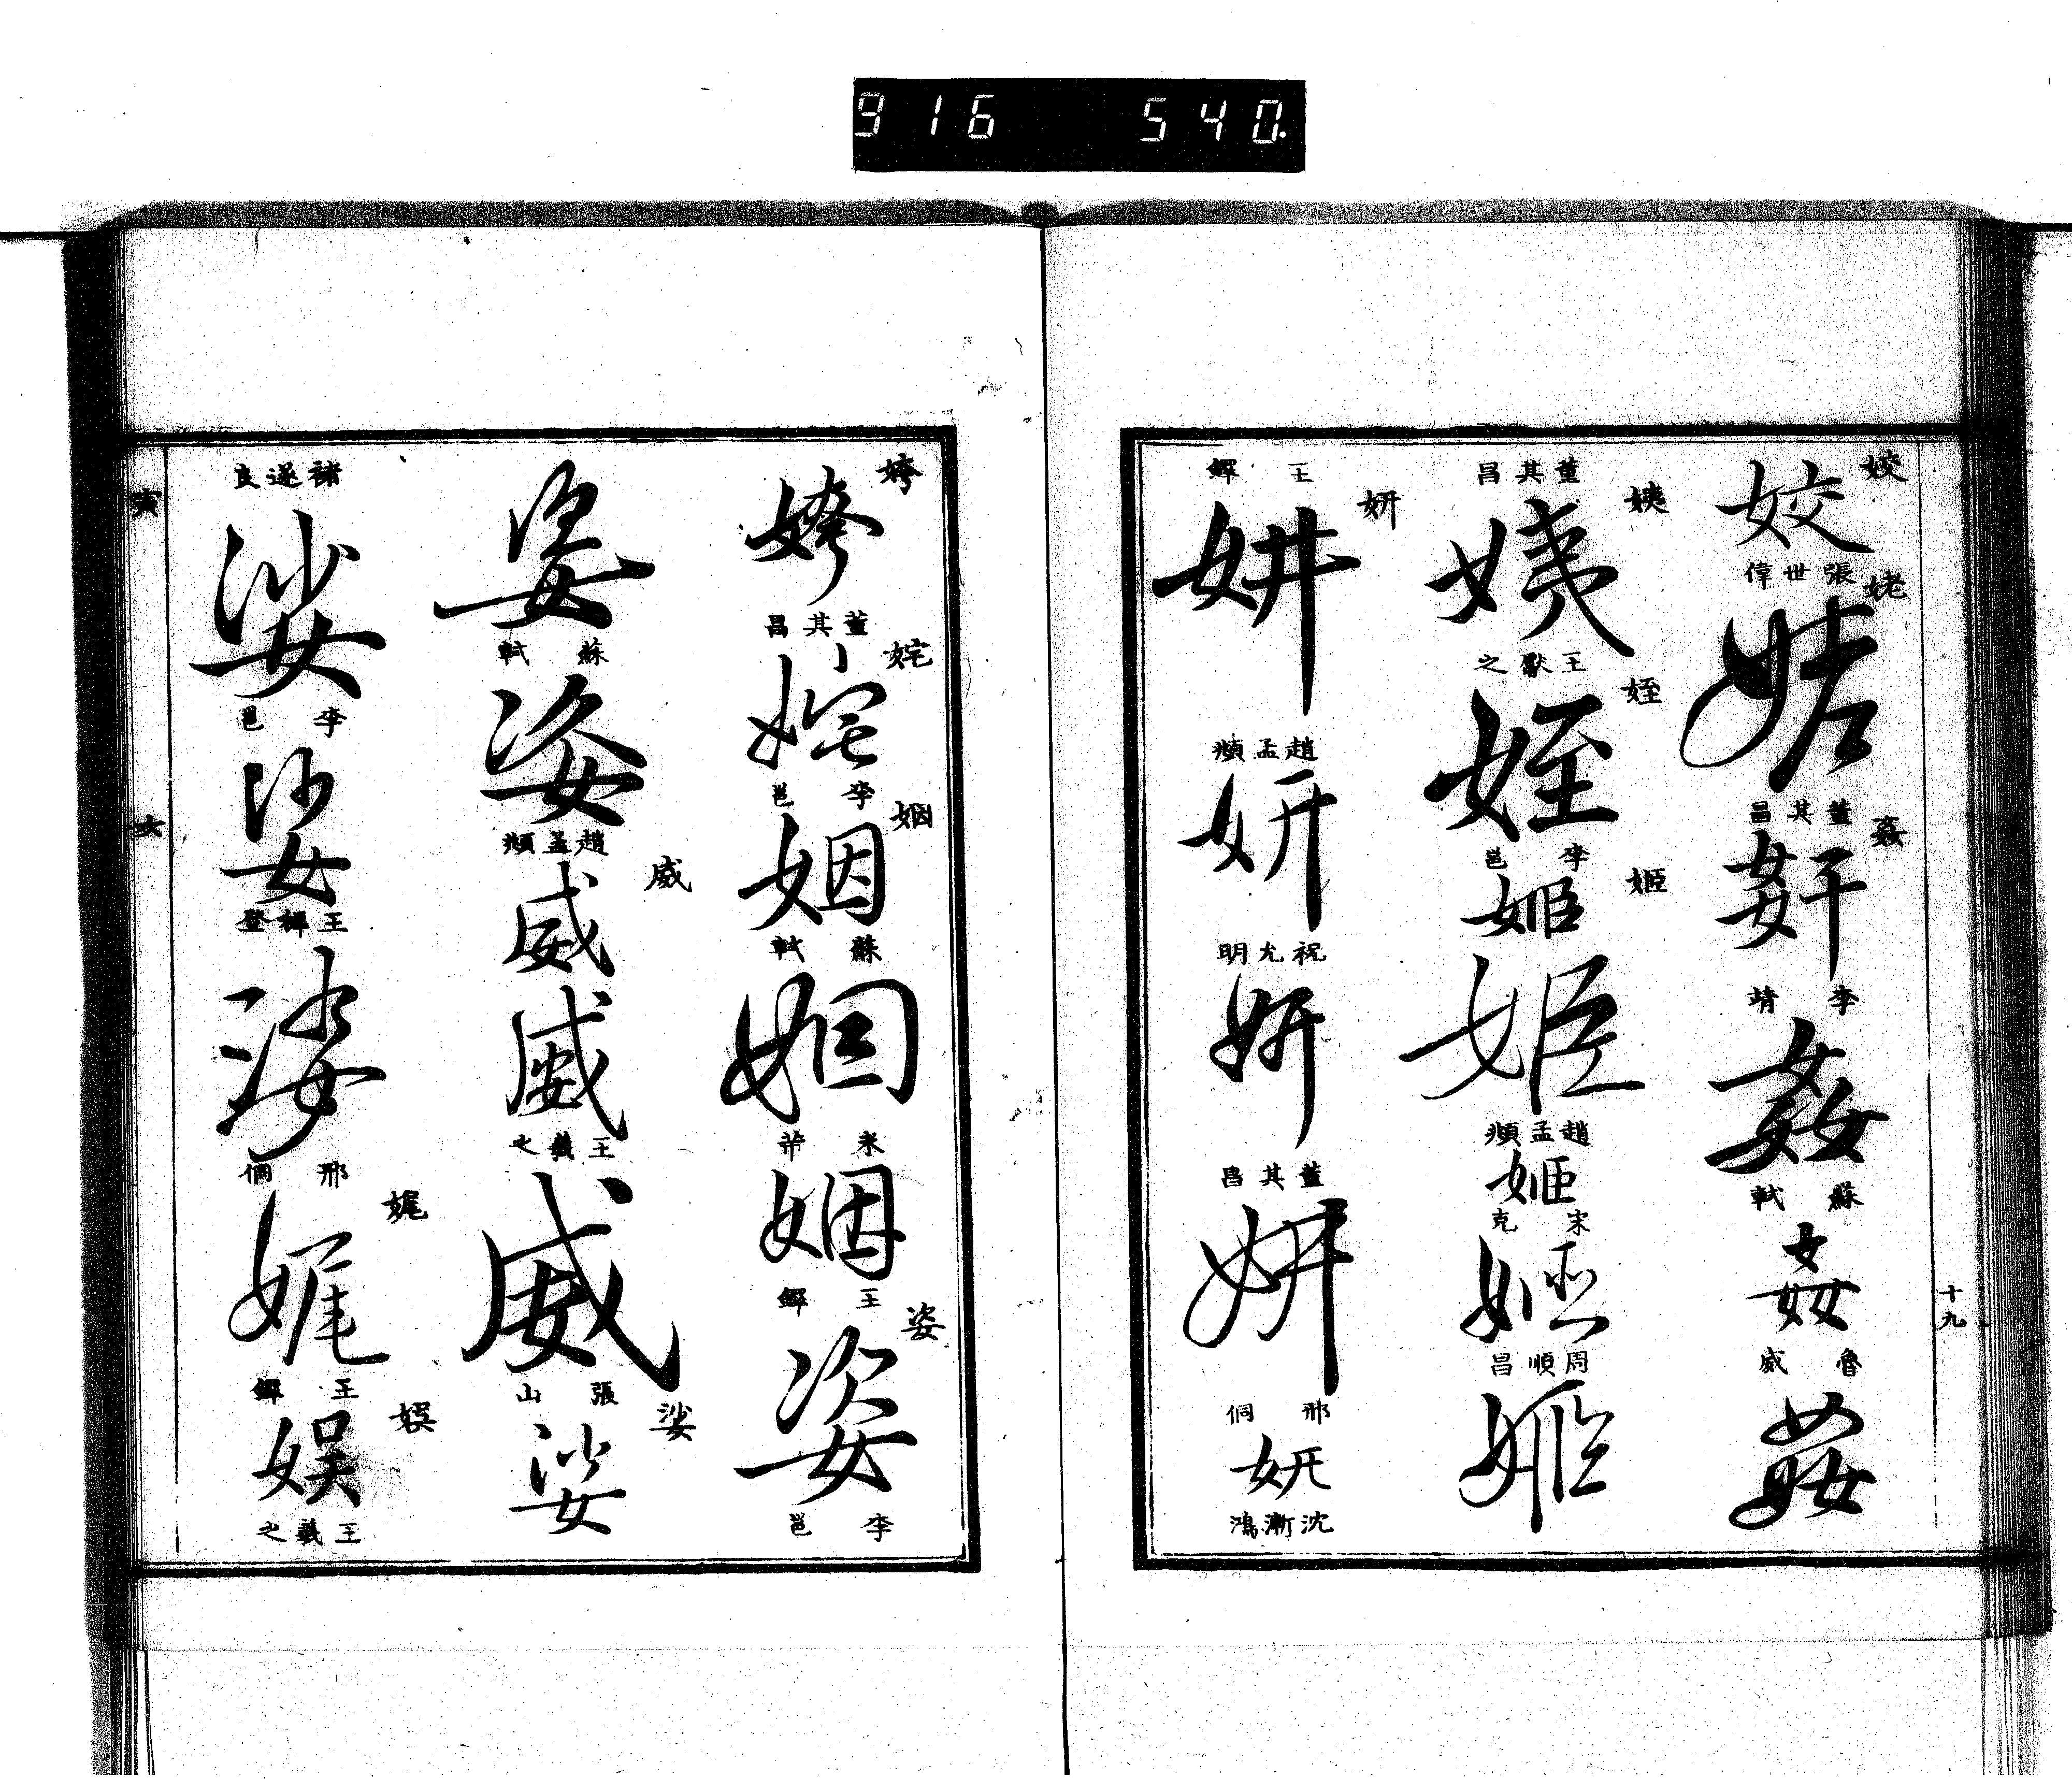 916 540.
十九
姣
姣
張世偉
姥
姥
董其昌
姦
姧
李靖
姦
蘇軾
姦
魯威
姦
董其昌
姨
姨
王獻之
姪
姪
李邕
姬
姬
姬
趙孟頫
姬
宋克
姬
周順昌
姬
王鐸
妍
妍
趙孟頫
妍
祝允明
妍
董其昌
妍
邢侗
妍
沈漸鴻
姱
姱
董其昌
姹
姹
李邕
姻
姻
蘇軾
姻
米芾
姻
王鐸
姿
姿
李邕
姿
蘇軾
姿
趙孟頫
威
威
威
王羲之
威
張山
娑
娑
褚遂良
娑
李邕
娑
王穉登
娑
邢侗
娓
娓
王鐸
娛
娛
王羲之
寅
女